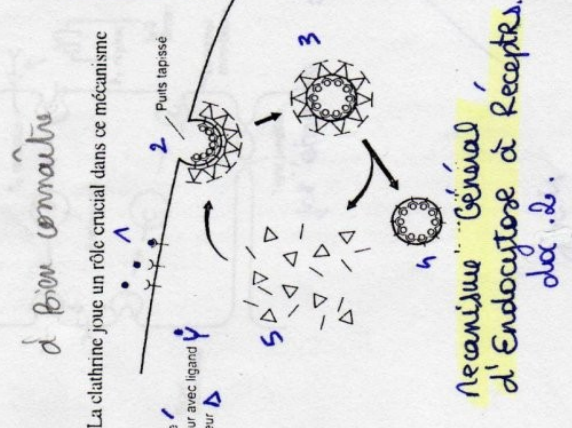 à bien connaître
La clathrine joue un rôle crucial dans ce mécanisme
1
2
Puits tapissé
3
4
5
ur avec ligand
eur
Mécanisme Général
d'Endocytose à Récepteurs.
doc .2.